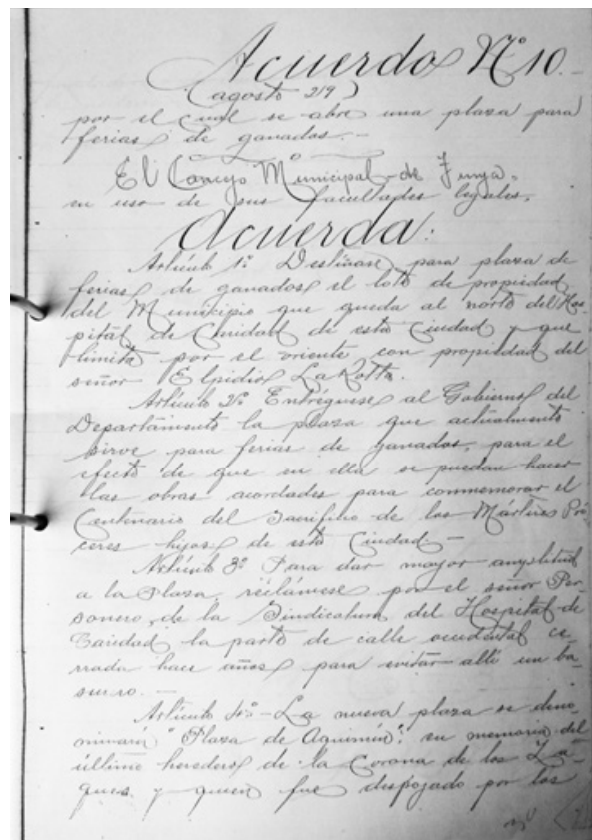 Acuerdo Nº 10.-
(agosto 29)
por el cual se abre una plaza para
ferias de ganados.-
El Concejo Municipal de Tunja.
en uso de sus facultades legales,
Acuerda:
Artículo 1º Destínase para plaza de
ferias de ganados el lote de propiedad
del Municipio que queda al norte del Hos-
pital de Caridad de esta Ciudad y que
limita por el oriente con propiedad del
señor Elpidio LaRotta.
Artículo 2º Entréguese al Gobierno del
Departamento la plaza que actualmente
sirve para ferias de ganados, para el
efecto de que en ella se puedan hacer
las obras acordadas para conmemorar el
Centenario del Sacrificio de los Mártires Pró-
ceres hijos de esta Ciudad-
Artículo 3º Para dar mayor amplitud
a la Plaza, reclámese por el señor Per-
sonero, de la Sindicatura del Hospital de
Caridad la parte de calle occidental ce-
rrada hace años para evitar allí un ba-
surero.-
Artículo 4º- La nueva plaza se deno-
minará "Plaza de Aquimin". en memoria del
último heredero de la Corona de los Za-
ques, y quien fue despojado por los